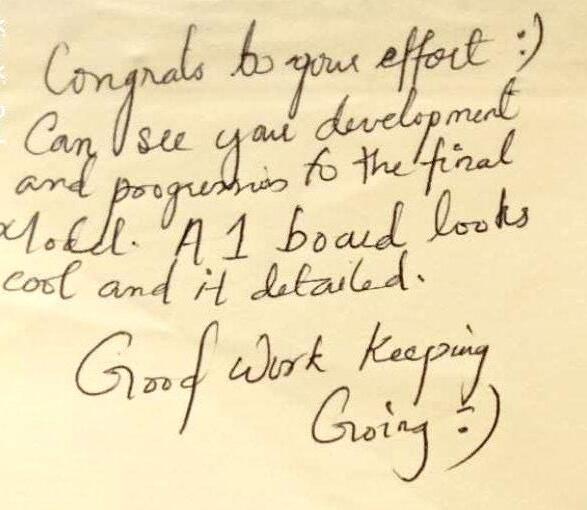 Congrats to your effort :)
Can see your development
and progression to the final
Model. A 1 board looks
cool and it detailed.
Good work Keeping
Going :)